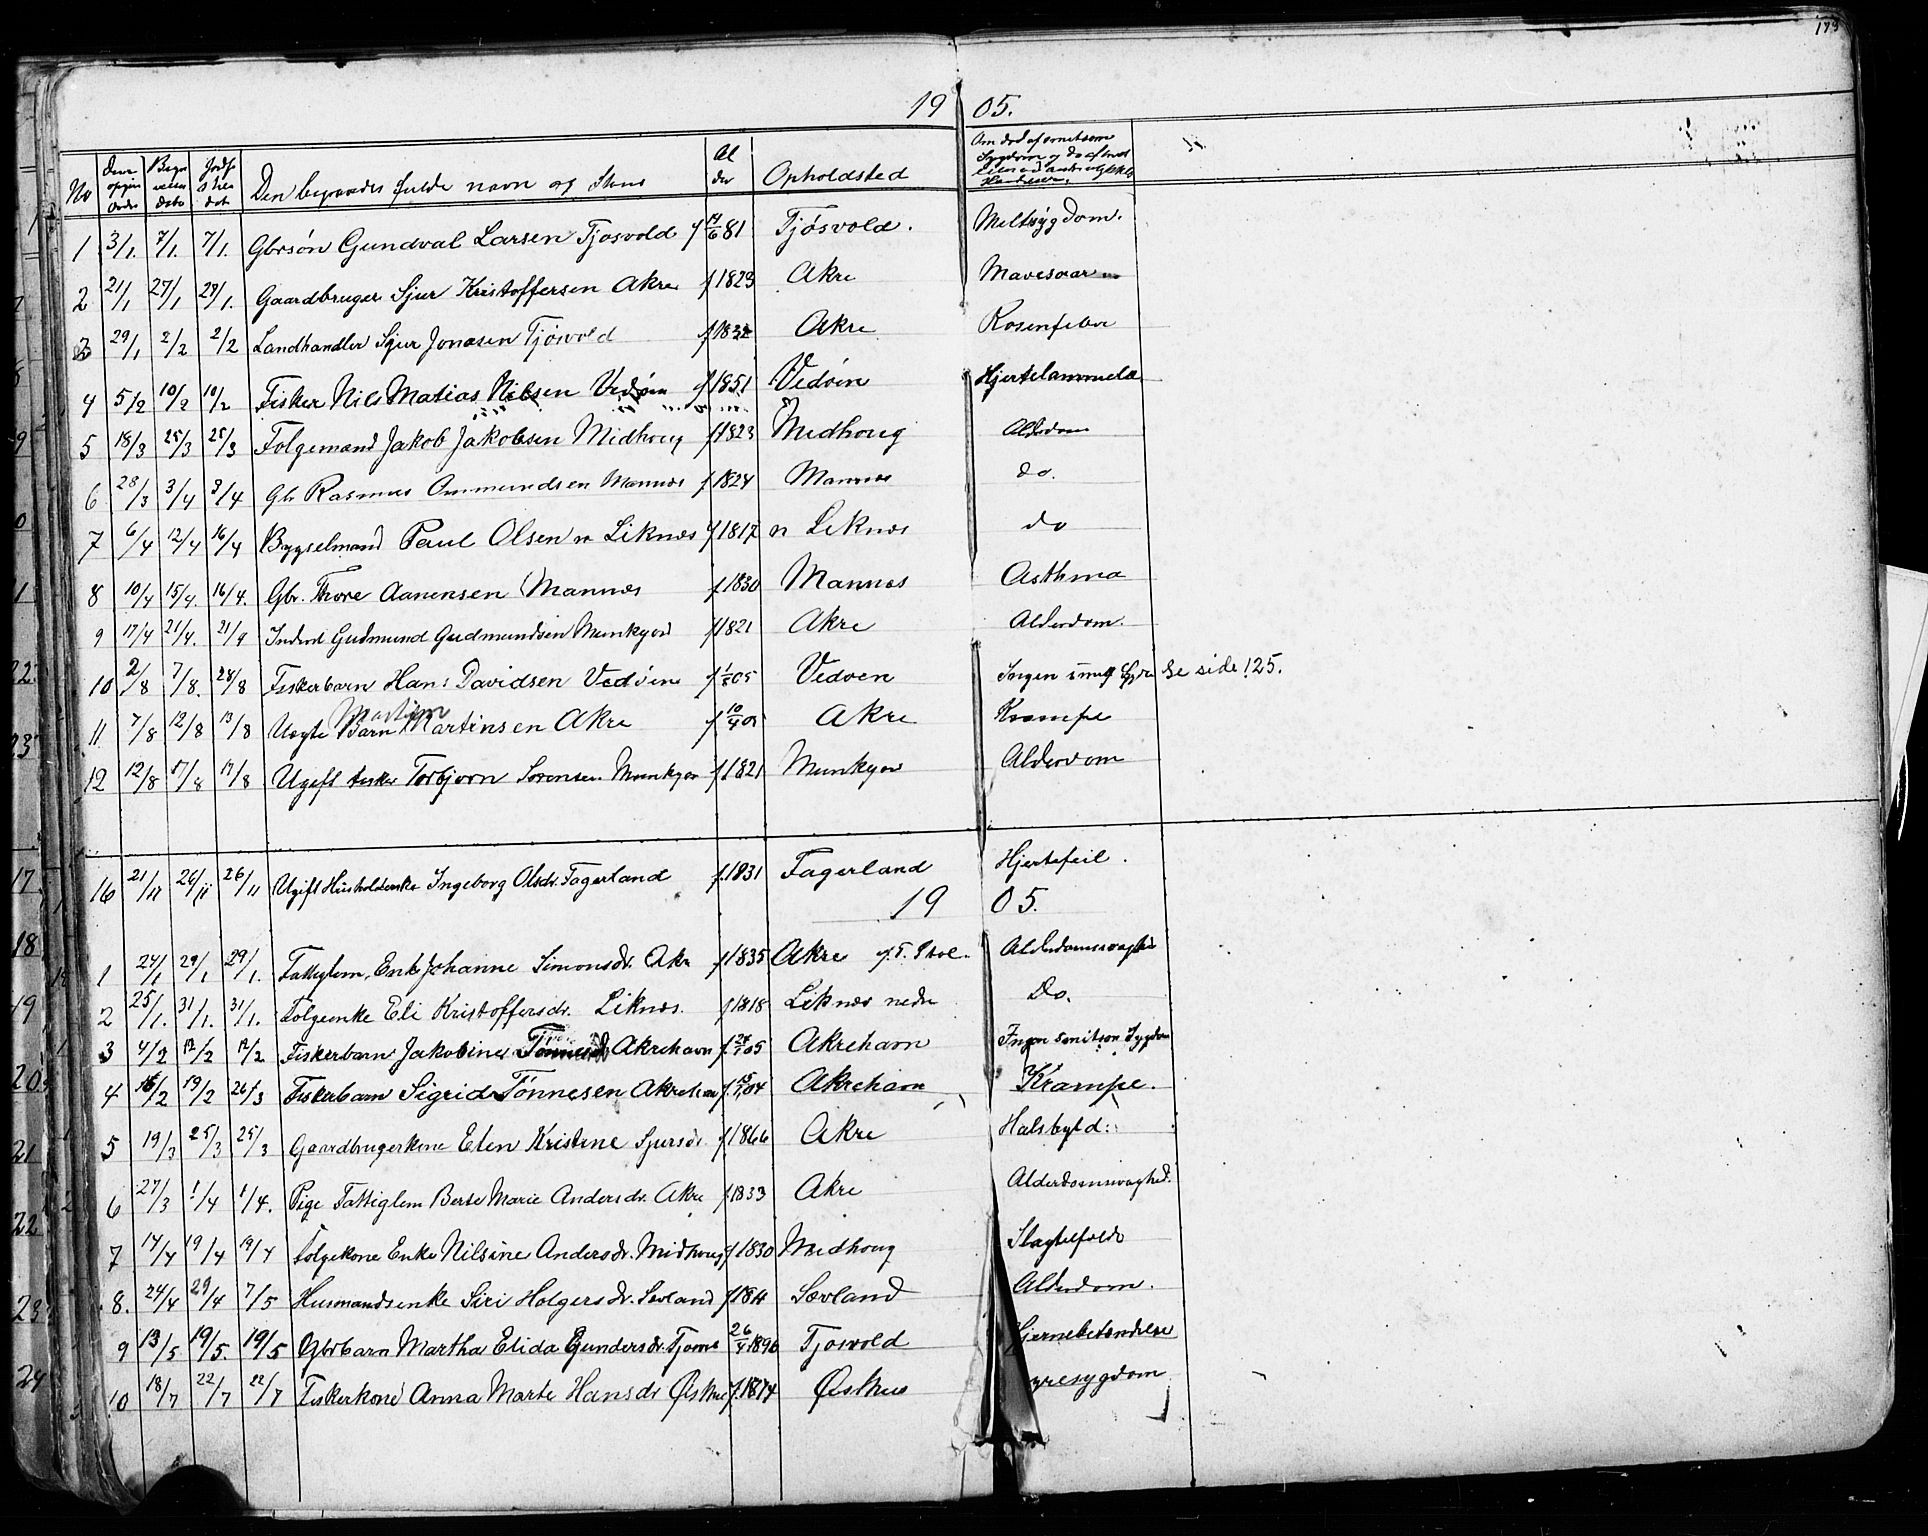 179
19 05.
No Begr Jordf Den begravedes fulde navn og Stand Al der Opholdsted Om død af Sygdom
1 3/1. 7/1. 7/1. Gbrsøn Gundval Larsen Tjøsvold f 14/6 81 Tjøsvold. Meltsygdom.
2 21/1 27/1 28/1. Gaardbruger Sjur Kristoffersen Akre f 1829 Akre Mavesaar
3 29/1 2/2 2/2 Landhandler Sjur Jonasen Tjøsvold f 1832 Akre Rosenfeber
4 5/2 10/2 10/2 Fisker Nils Matias Nilsen Vedøen f 1851 Vedøen Hjertelammelse
5 18/3 25/3 25/3 Folgemand Jakob Jakobsen Midhoug f 1823 Medhoug Alderdom
6 28/3 3/4 3/4 Gbr Rasmus Ommundsen Mannes f 1824 Mannes do.
7 6/4 12/4 16/4 Bygselmand Paul Olsen n Liknes f 1817 n Liknes do
8 10/4 15/4. 16/4. Gbr. Thore Aanensen Mannes f 1830 Mannes Asthma
9 17/4 21/4. 21/4 Inderst Gudmund Gudmundsen Munkejor f 1821 Akre Alderdom.
10 2/8 7/8. 28/8 Fiskerbarn Hans Davidsen Vedøen f 1/8 05 Vedøen Ingen smits Sygd Se side 125.
Martin
11 7/8 12/8 13/8 Uægte Barn Martinsen Akre f 10/4 05 Akre Krampe
12 12/8 17/8 17/8 Ugift fisker Torbjorn Sorensen Munkejor f. 1821 Munkejor Alderdom
16 21/11 26/11 26/11 Ugift Husholderske Ingeborg Olsdr. Fagerland f. 1831 Fagerland Hjertefeil.
19 05.
1 24/1 29/1 29/1. Fattiglem, Enke Johanne Simonsdr. Akre f 1835 Akre Alderdomssvaghed
2 25/1. 31/1. 31/1. Folgeenke Eli Kristoffersdr. Liknes. f 1818 Liknes nedre Do.
3 4/2 12/2 12/2 Fiskerbarn Jakobine Tønnesdr Akrehavn f. 24/1 05 Akrehavn Ingen smitsom Sygdom
4 16/2 19/2 26/3 Fiskerbarn Sigrid Tønnesen Akrehavn f. 15/1 04 Akrehavn Krampe.
5 19/3 25/3 25/3 Gaardbrugerkone Elen Kristine Sjursdr. f 1866 Akre Halsbyld.
6 27/3 1/4 1/4. Pige Fattiglem Berte Marie Andersdr. Akre f. 1833 Akre Alderdomssvaghed.
7 14/4 19/4 19/4 Folgekone Enke Nilsine Andersdr. Midhoug f 1830 Medhoug Slagtilfælde
8. 24/4 29/4 7/5 Husmandsenke Siri Holgersdr. Sævland f 1811 Sævland Alderdom.
9 13/5 19/5. 19/5 Gbrbarn Martha Elida Gundersdr. Tjosv 26/4 1896 Tjosvold Hjernebetændelse
10 18/7 22/7 22/7 Fiskerkone Anna Marte Hansdr Østhus f. 1874 Østhus yresygdom